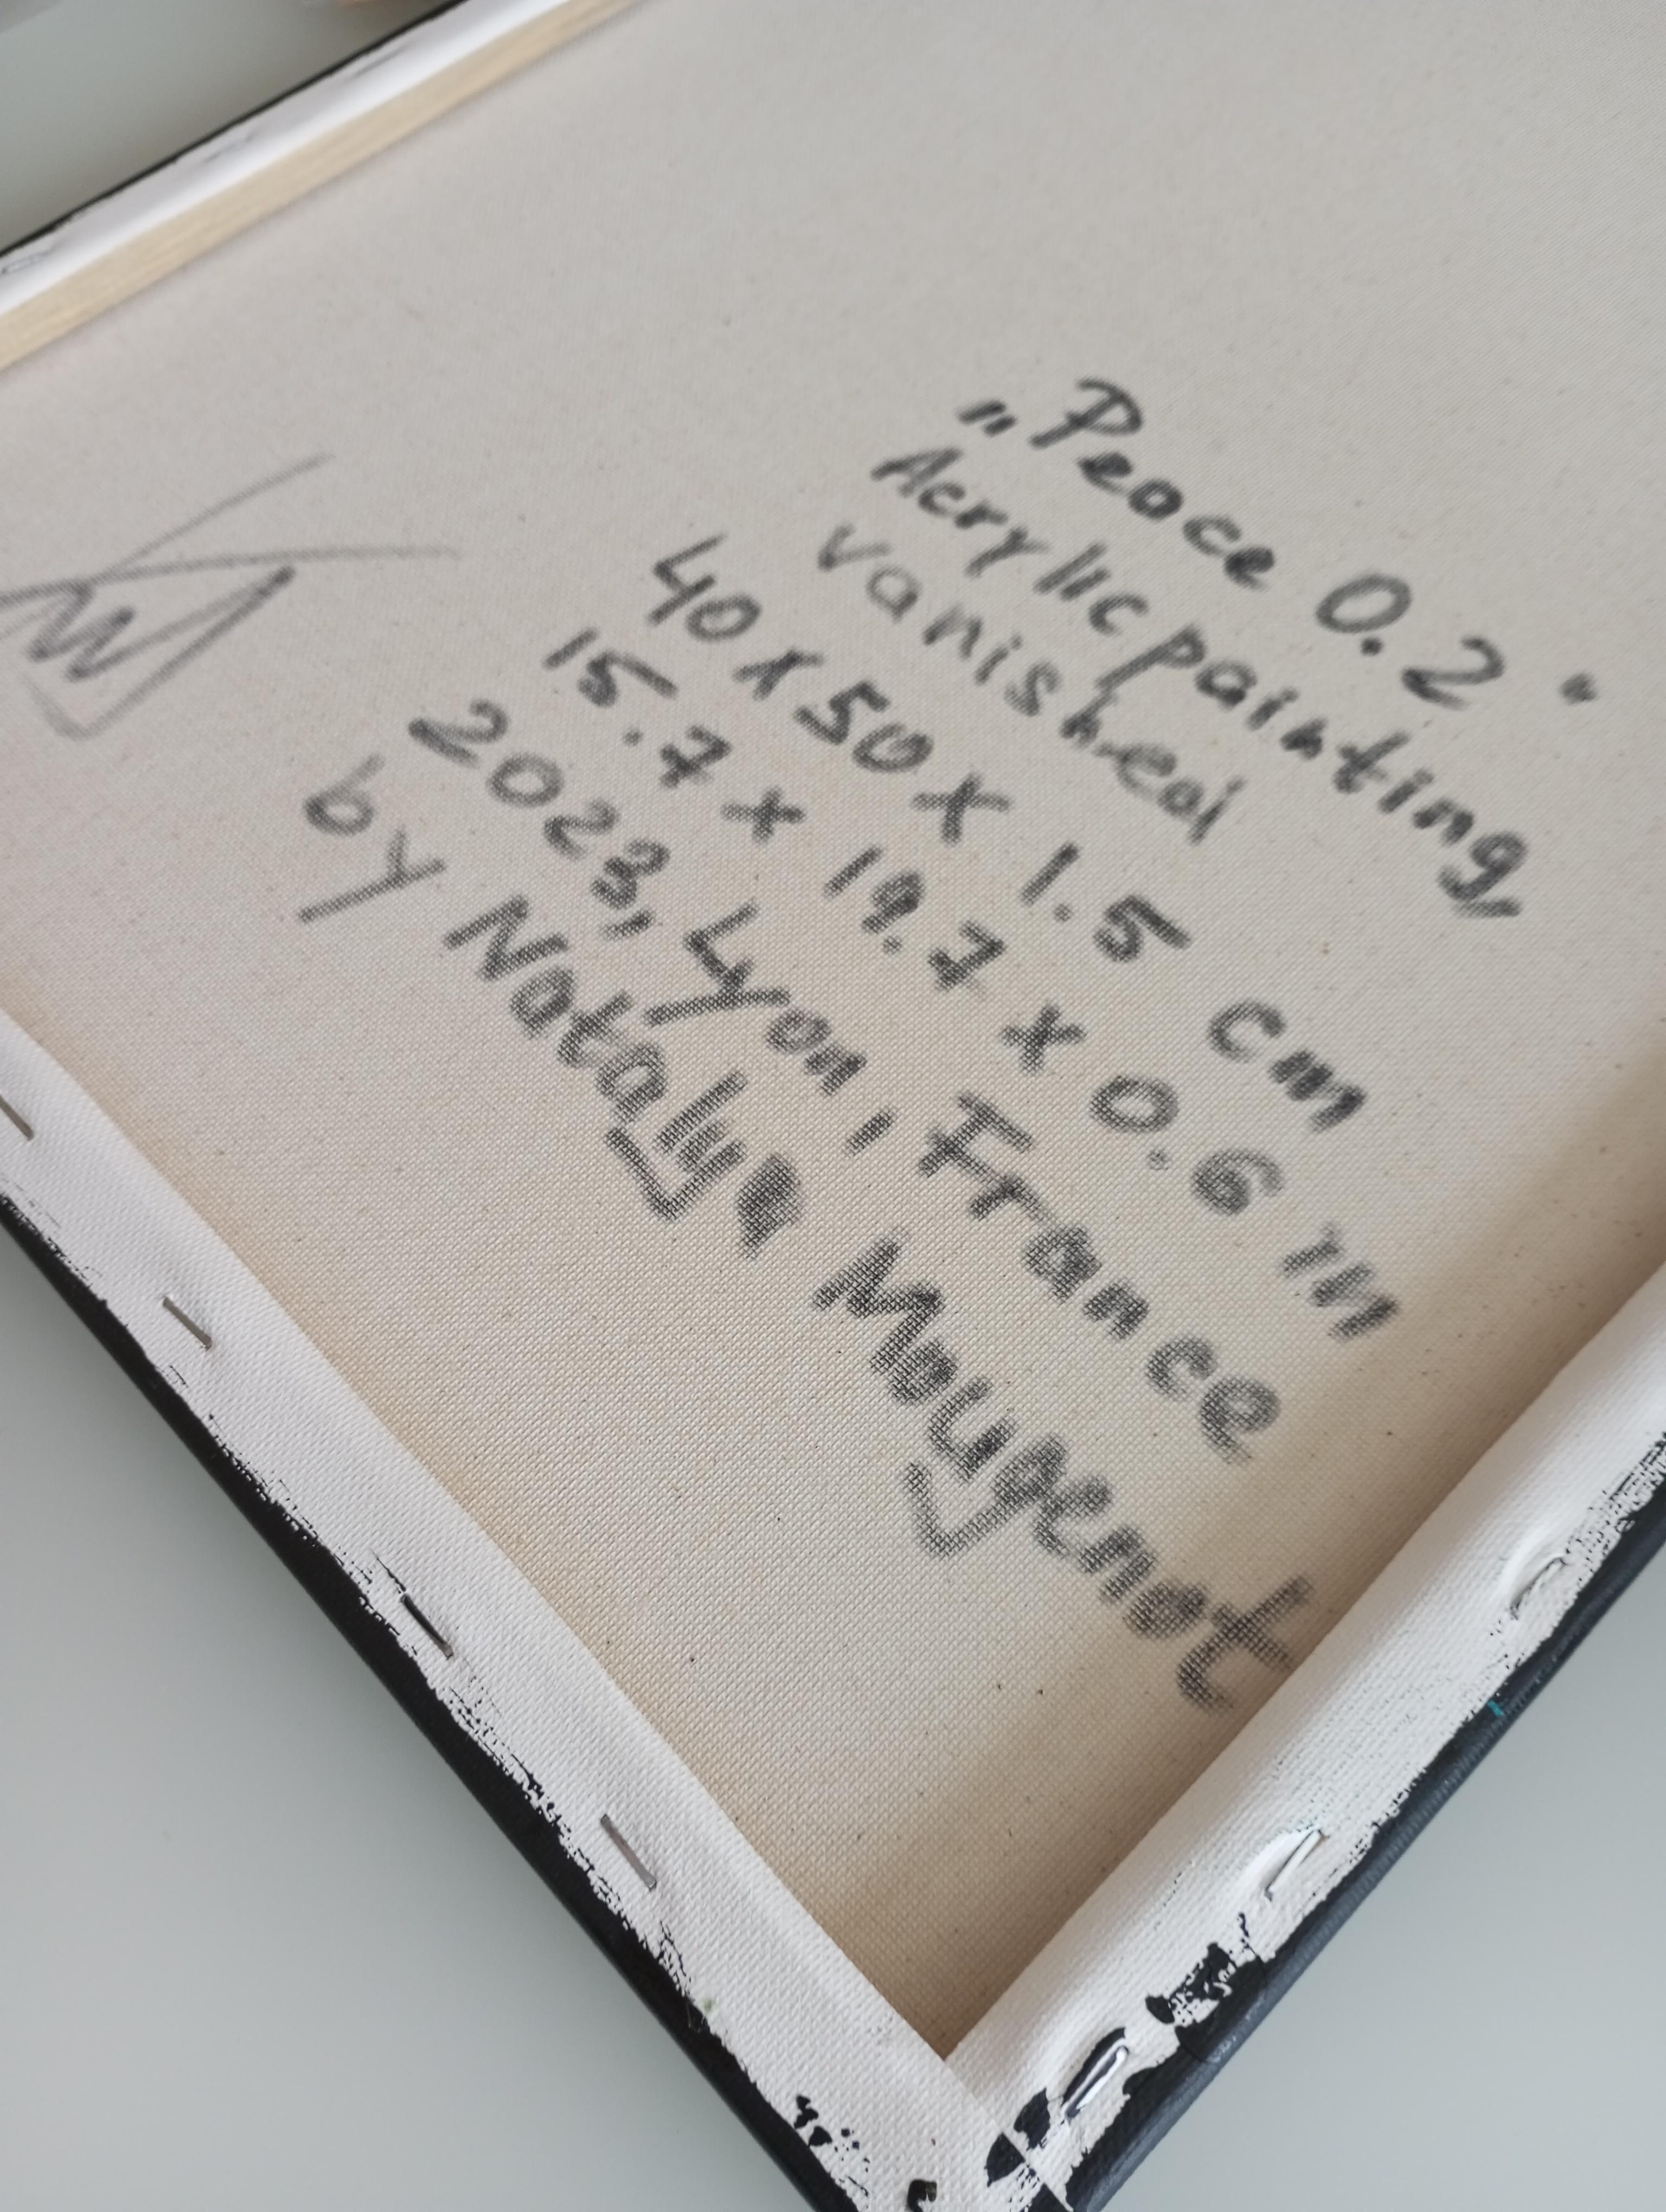 „Peace 0.2“
Acrylic painting,
vanished
40 x 50 x 1.5 cm
15.7 x 19.7 x 0.6 in
2023, Lyon, France
by Nataly Mougenot